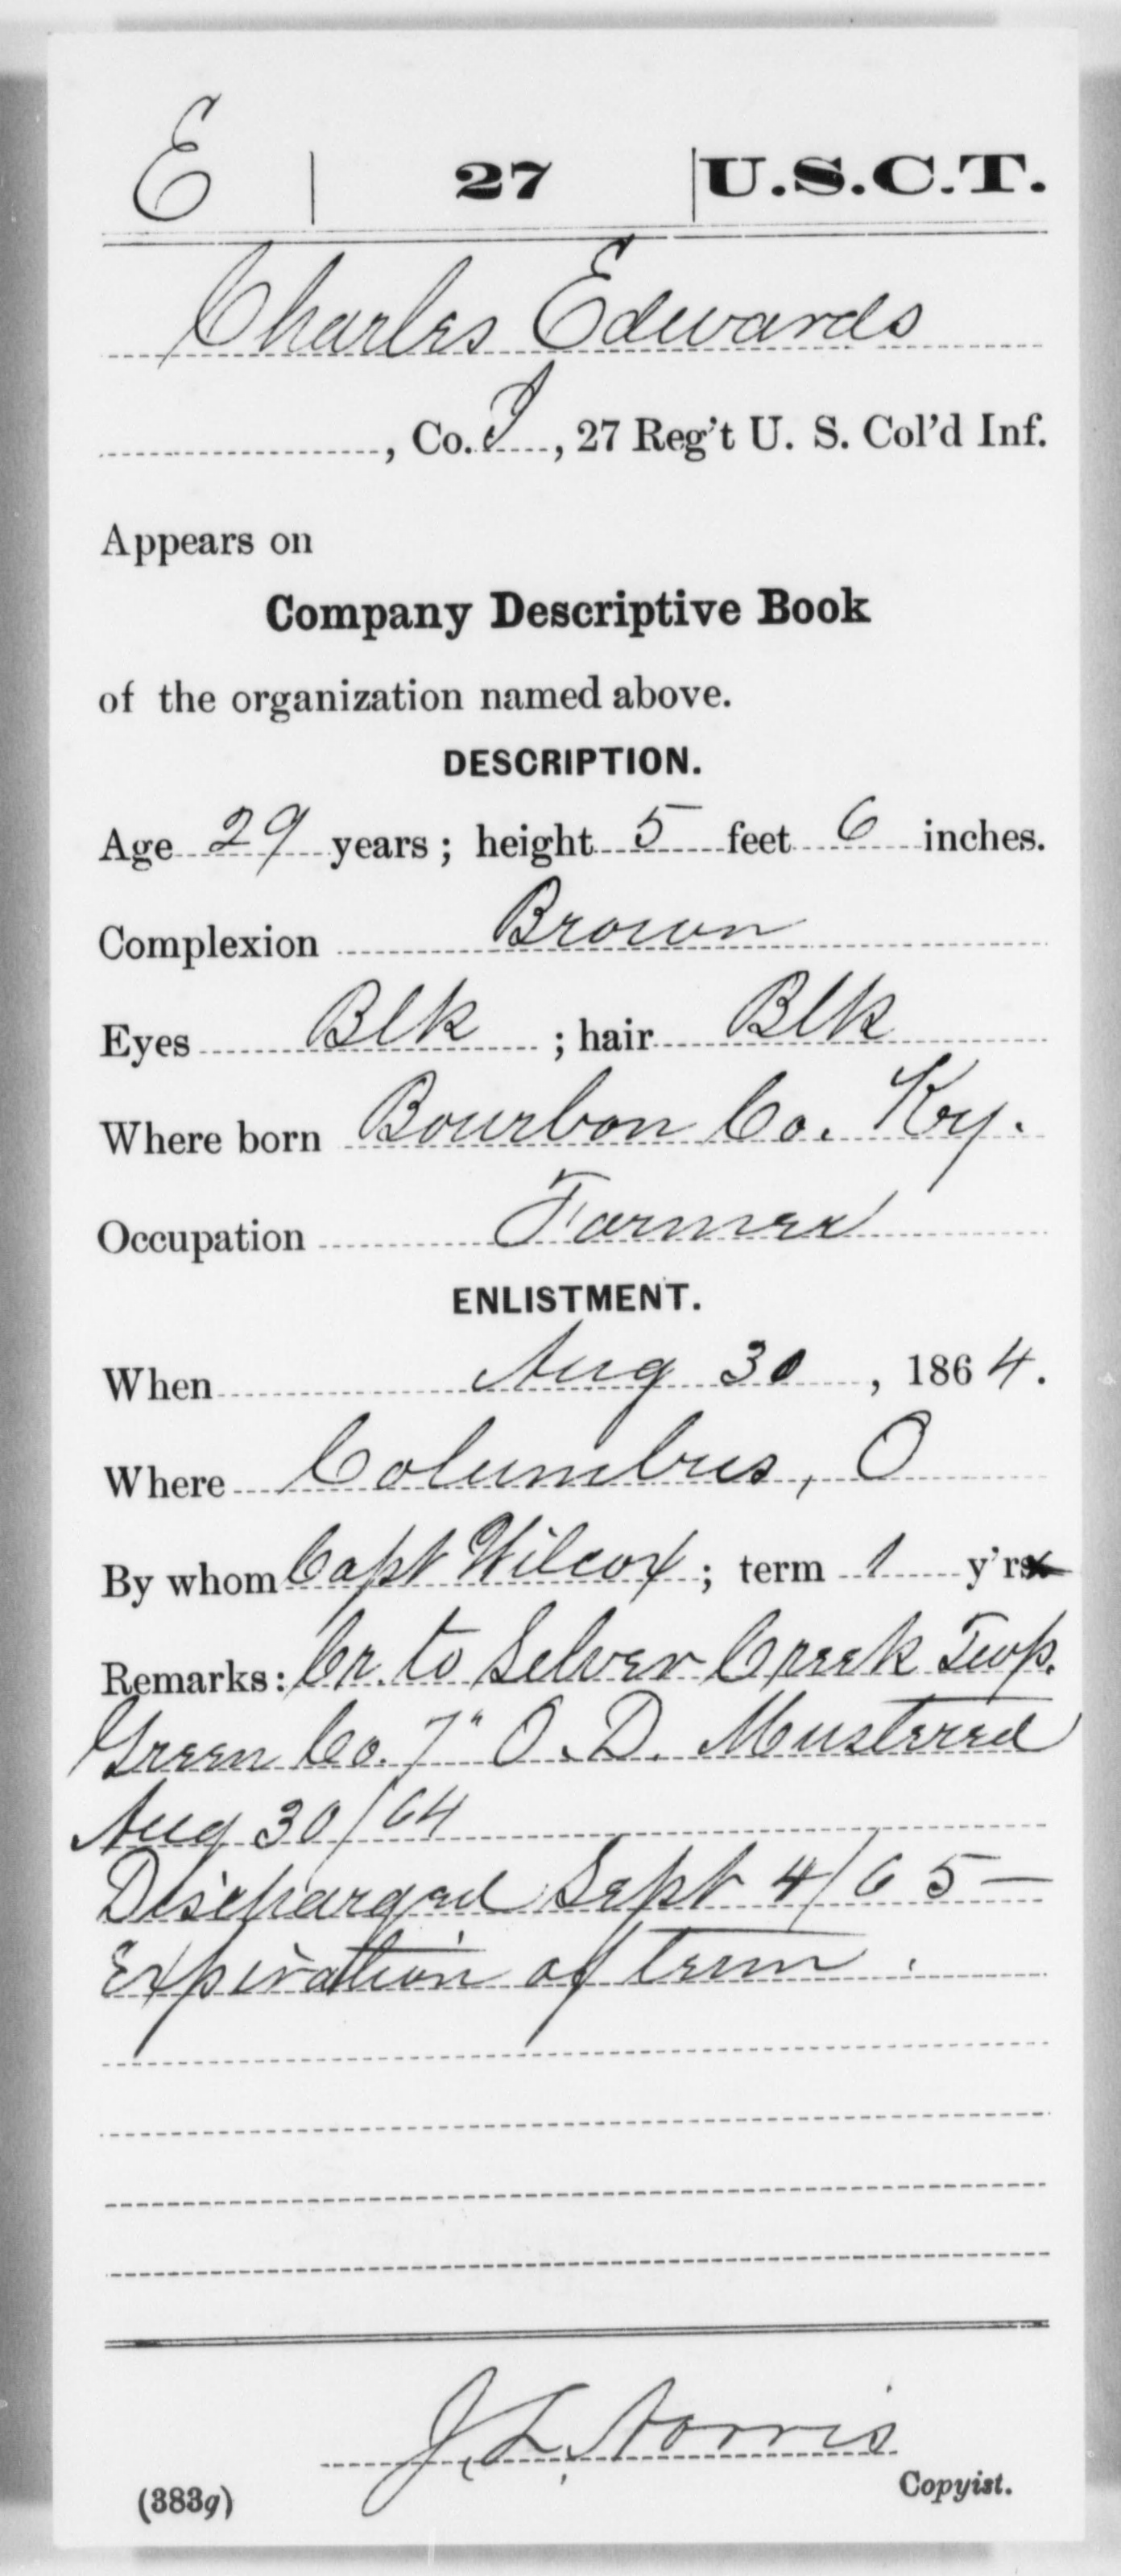 E | 27 | U.S.C.T.
Charles Edwards
, Co. I, 27 Reg't U. S. Col'd Inf.
Appears on
Company Descriptive Book
of the organization named above.
DESCRIPTION.
Age 29 years; height 5 feet 6 inches.
Complexion Brown
Eyes Blk ; hair Blk
Where born Bourbon Co. Ky.
Occupation Farmer
ENLISTMENT.
When Aug 30, 1864.
Where Columbus, O
By whom Capt Wilcox; term 1 y'rs
Remarks: Cr. to Silver Creek Twp.
Green Co. 7" O.D. Mustered
Aug 30/64
Discharged Sept 4/65—
Expiration of term.
J. L. Norris
Copyist.
(383g)